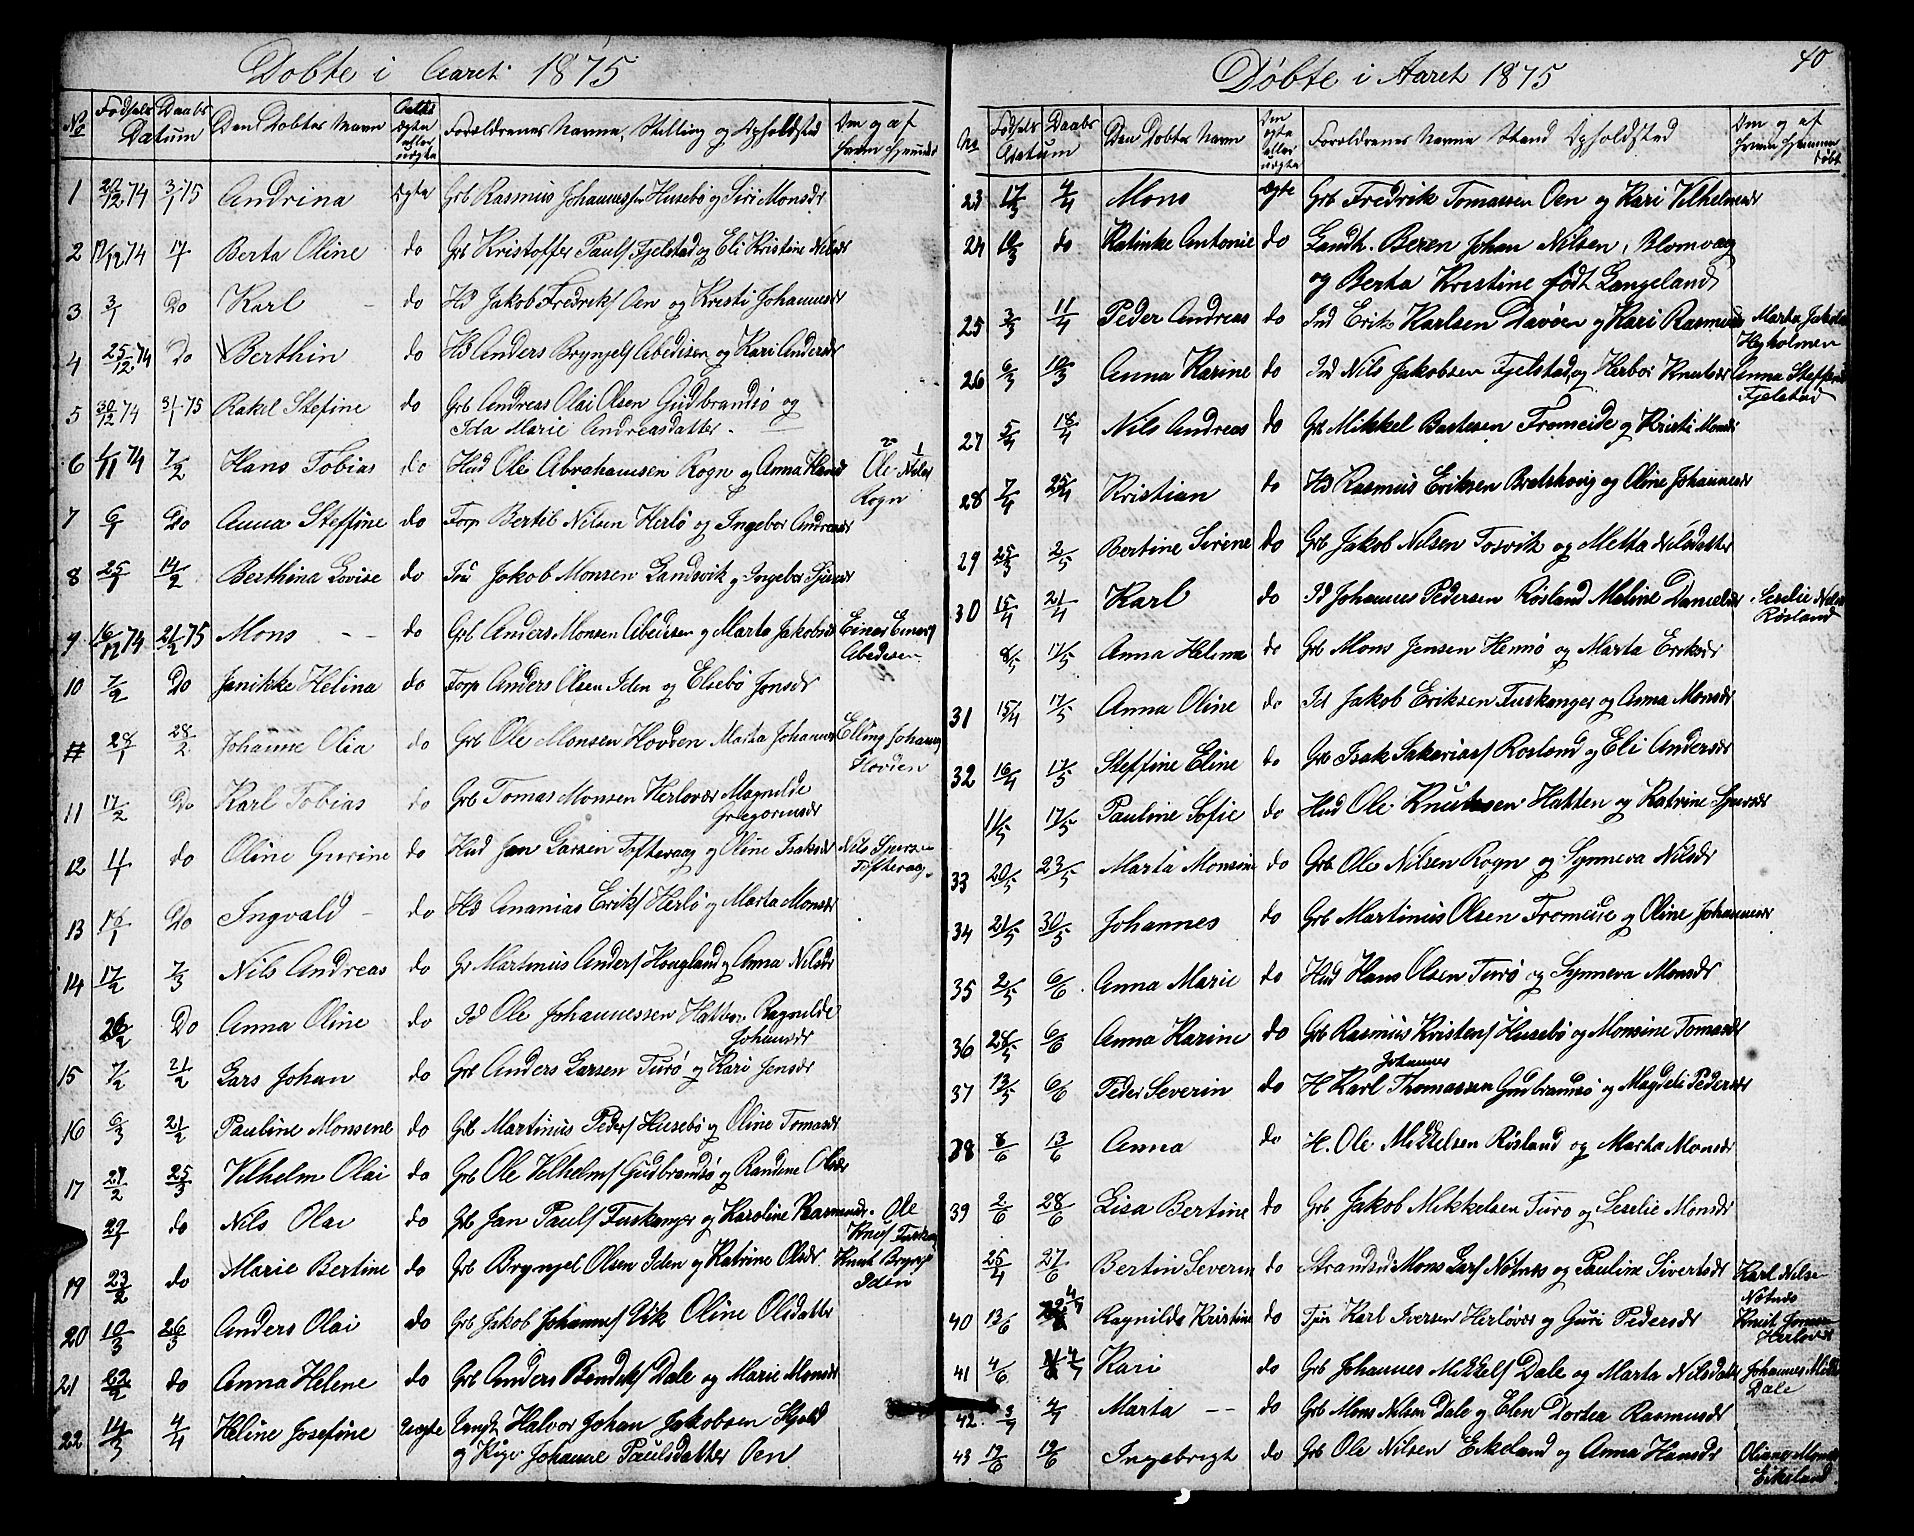 Døbte i Aaret 1875
No Fødsels Daabs Datum Den Døbtes Navn Ægte eller uægte Forældrenes Navne, Stilling og Opholdsted Om og af hvem hjemmed.
1 20/12 74 3/1 75 Andrina Ægte Grb Rasmus Johannessen Husebø og Siri Monsdr
2 17/12 74 17/1 Berta Oline do Grb Kristoffer Pauls Fjelstad og Eli Kristine Nilsdr
3 3/1 Do Karl do Hd Jakob Fredriks Oen og Kristi Johannesdr
4 25/12 74 Do Berthin do Hd Anders Brynjels Abedisen og Kari Andersdr
5 30/12 74 31/1 75 Rakel Stefine do Grb Andreas Olai Olsen Gudbrandsø og
Ida Marie Andreasdatter
6 1/11 74 7/2 Hans Tobias do Hud Ole Abrahamsen Rogn og Anna Hansd Ole Nils
Rogn
7 6/1 Do Anna Steffine do Forp Bertil Nilsen Herlø og Ingebor Andreasdr
8 25/1 14/2 Berthina Lovise do Jakob Monsen Landsvik og Ingebor
9 16/12 74 21/2 75 Mons do Grb Anders Monsen Abedisen og Marta Jakobsd Einar Einars
Abedisen
10 7/2 Do Janikke Helina do Forp Anders Olsen Iden og Elsebø Jonsdr
# 28/1 28/2 Johanne Olia do Grb Ole Monsen Hovden Marta Johannes Elling Johannes
Hovden
11 17/2 Do Karl Tobias do Grb Tomas Monsen Herløvær Magnilde
Gregoriusdr
12 4/1 do Oline Gurine do Hud Jan Larsen Toftevaag og Oline Isaksdr Nils
Toftevaag
13 16/1 Do Ingvald do Hd Ananias Eriks Herlø og Marta Monsdr
14 17/2 7/3 Nils Andreas do Gr Martinus Anders Hougland og Anna Nilsdr
26/2 Do Anna Oline do Id Ole Johannessen Hatten Ragnilde
Johansdr
15 7/2 21/2 Lars Johan do Grb Anders Larsen Turø og Kari Jensdr
16 6/3 21/2 Pauline Monsene do Grb Martinus Peders Husebø og Oline Tomasdr
17 27/2 25/3 Vilhelm Olai do Grb Ole Vilhelms Gudbrandsø og Randine Olsdr
27/1 do Nils Olai do Grb Jan Pauls Tuskanger og Karoline Rasmusdr Ole
Knuds Tuskang
19 23/2 do Marie Bertine do Grb Brynjel Olsen Iden og Katrine Olsdr Knut Brynjs
Iden
20 10/3 26/3 Anders Olai do Grb Jakob Johannes Vik Oline Olsdatter
21 22/2 do Anna Helene do Grb Anders Bendiks Dale og Marie Monsdr
22 14/3 4/4 Heline Josefine Uægte Ungk Halvor Johan Jakobsen
og Pige Johanne Paulsdatter Oen
40
Døbte i Aaret 1875
No Fødsels Daabs Datum Den Døbtes Navn Om ægte eller uægte Forældrenes Navne Stand Opholdsted Om og af hvem hjemme døbt
23 17/3 4/4 Mons Ægte Grb Fredrik Tomassen Oen og Kari Vilhelmsdr
24 10/3 do Katinke Antonie do Landh. Beren Johan Nilsen, Blomvag
og Berta Kristine født Langeland
25 3/3 11/4 Peder Andreas do Ind Erik Karlsen Davøen og Kari Rasmusdr Marta Jakobs
Hyholmen
26 6/3 10/3 Anna Karine do Ind Nils Jakobsen Fjelstad og Herbor Knutsdr Anna Steffens
Fjelstad
27 5/4 18/4 Nils Andreas do Grb Mikkel Bastesen Fromeide og Kristi Monsd
28 7/4 25/4 Kristian do Hd Rasmus Eriksen Bratshoug og Oline Johannesdr
29 25/3 2/5 Bertine Sirene do Grb Jakob Nilsen Tosvik og Metta Nilsdatter
30 15/4 21/4 Karl do Id Johannes Pedersen Røsland Maline Danielsdr Seselie Nils
Røsland
8/5 17/5 Anna Helena do Grb Mons Jensen Hennø og Marta Eriksdr
31 15/4 17/5 Anna Oline do Id Jakob Eriksen Tuskanger og Anna Monsdr
32 16/4 17/5 Steffine Eline do Grb Isak Sakarias Rosland og Eli Andersdr
11/5 17/5 Pauline Sofie do Hud Ole Knutsen Hatten og Katrine
33 20/5 23/5 Marta Monsine do Grb Ole Nilsen Rogn og Synneva Nilsdr
34 21/5 30/5 Johannes do Grb Martinus Olsen Fromeide og Oline Johannesdr
35 2/5 6/6 Anna Marie do Hud Hans Olsen Turø og Synneva Monsdr
36 28/5 6/6 Anna Karine do Grb Rasmus Kristens Husebø og Monsine Tomasdr
37 13/5 6/6 Peder Severin do H Karl Johannes Thomassen Gudbrandsø og Magdeli Pedersdr
38 8/6 13/6 Anna do H. Ole Mikkelsen Røsland og Marta Monsdr
39 2/6 28/6 Lisa Bertine do Grb Jakob Mikkelsen Turø og Seselie Monsdr
25/4 27/6 Bertin Severin do Strandsd Mons Lars Nøtnes og Pauline Sivertsdr Karl Nilse
Nøtnes
40 13/6 4/7 Ragnilde Kristine do Tjen Karl Iversen Herløvær og Guri Pedersdr Knut Jonsen
Herløvær
41 4/6 4/7 Kari do Grb Johannes Mikkels Dale og Marta Nilsdatter Johannes Mikk
Dale
42 3/7 4/7 Marta do Grb Mons Nilsen Dale og Elen Dortea Rasmusdr
43 19/6 19/6 Ingebrigt do Grb Ole Nilsen Eikeland og Anna Hansdr Oliane Mons
Eikeland